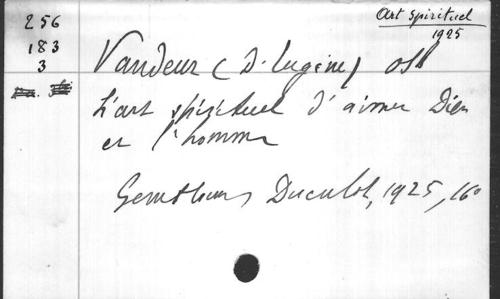 256
183
3
Art spirituel
1925
Vandeur (D. Eugène) OSB
L'art spirituel d'aimer Dieu
et l'homme
Gembloux, Duculot, 1925, 16°